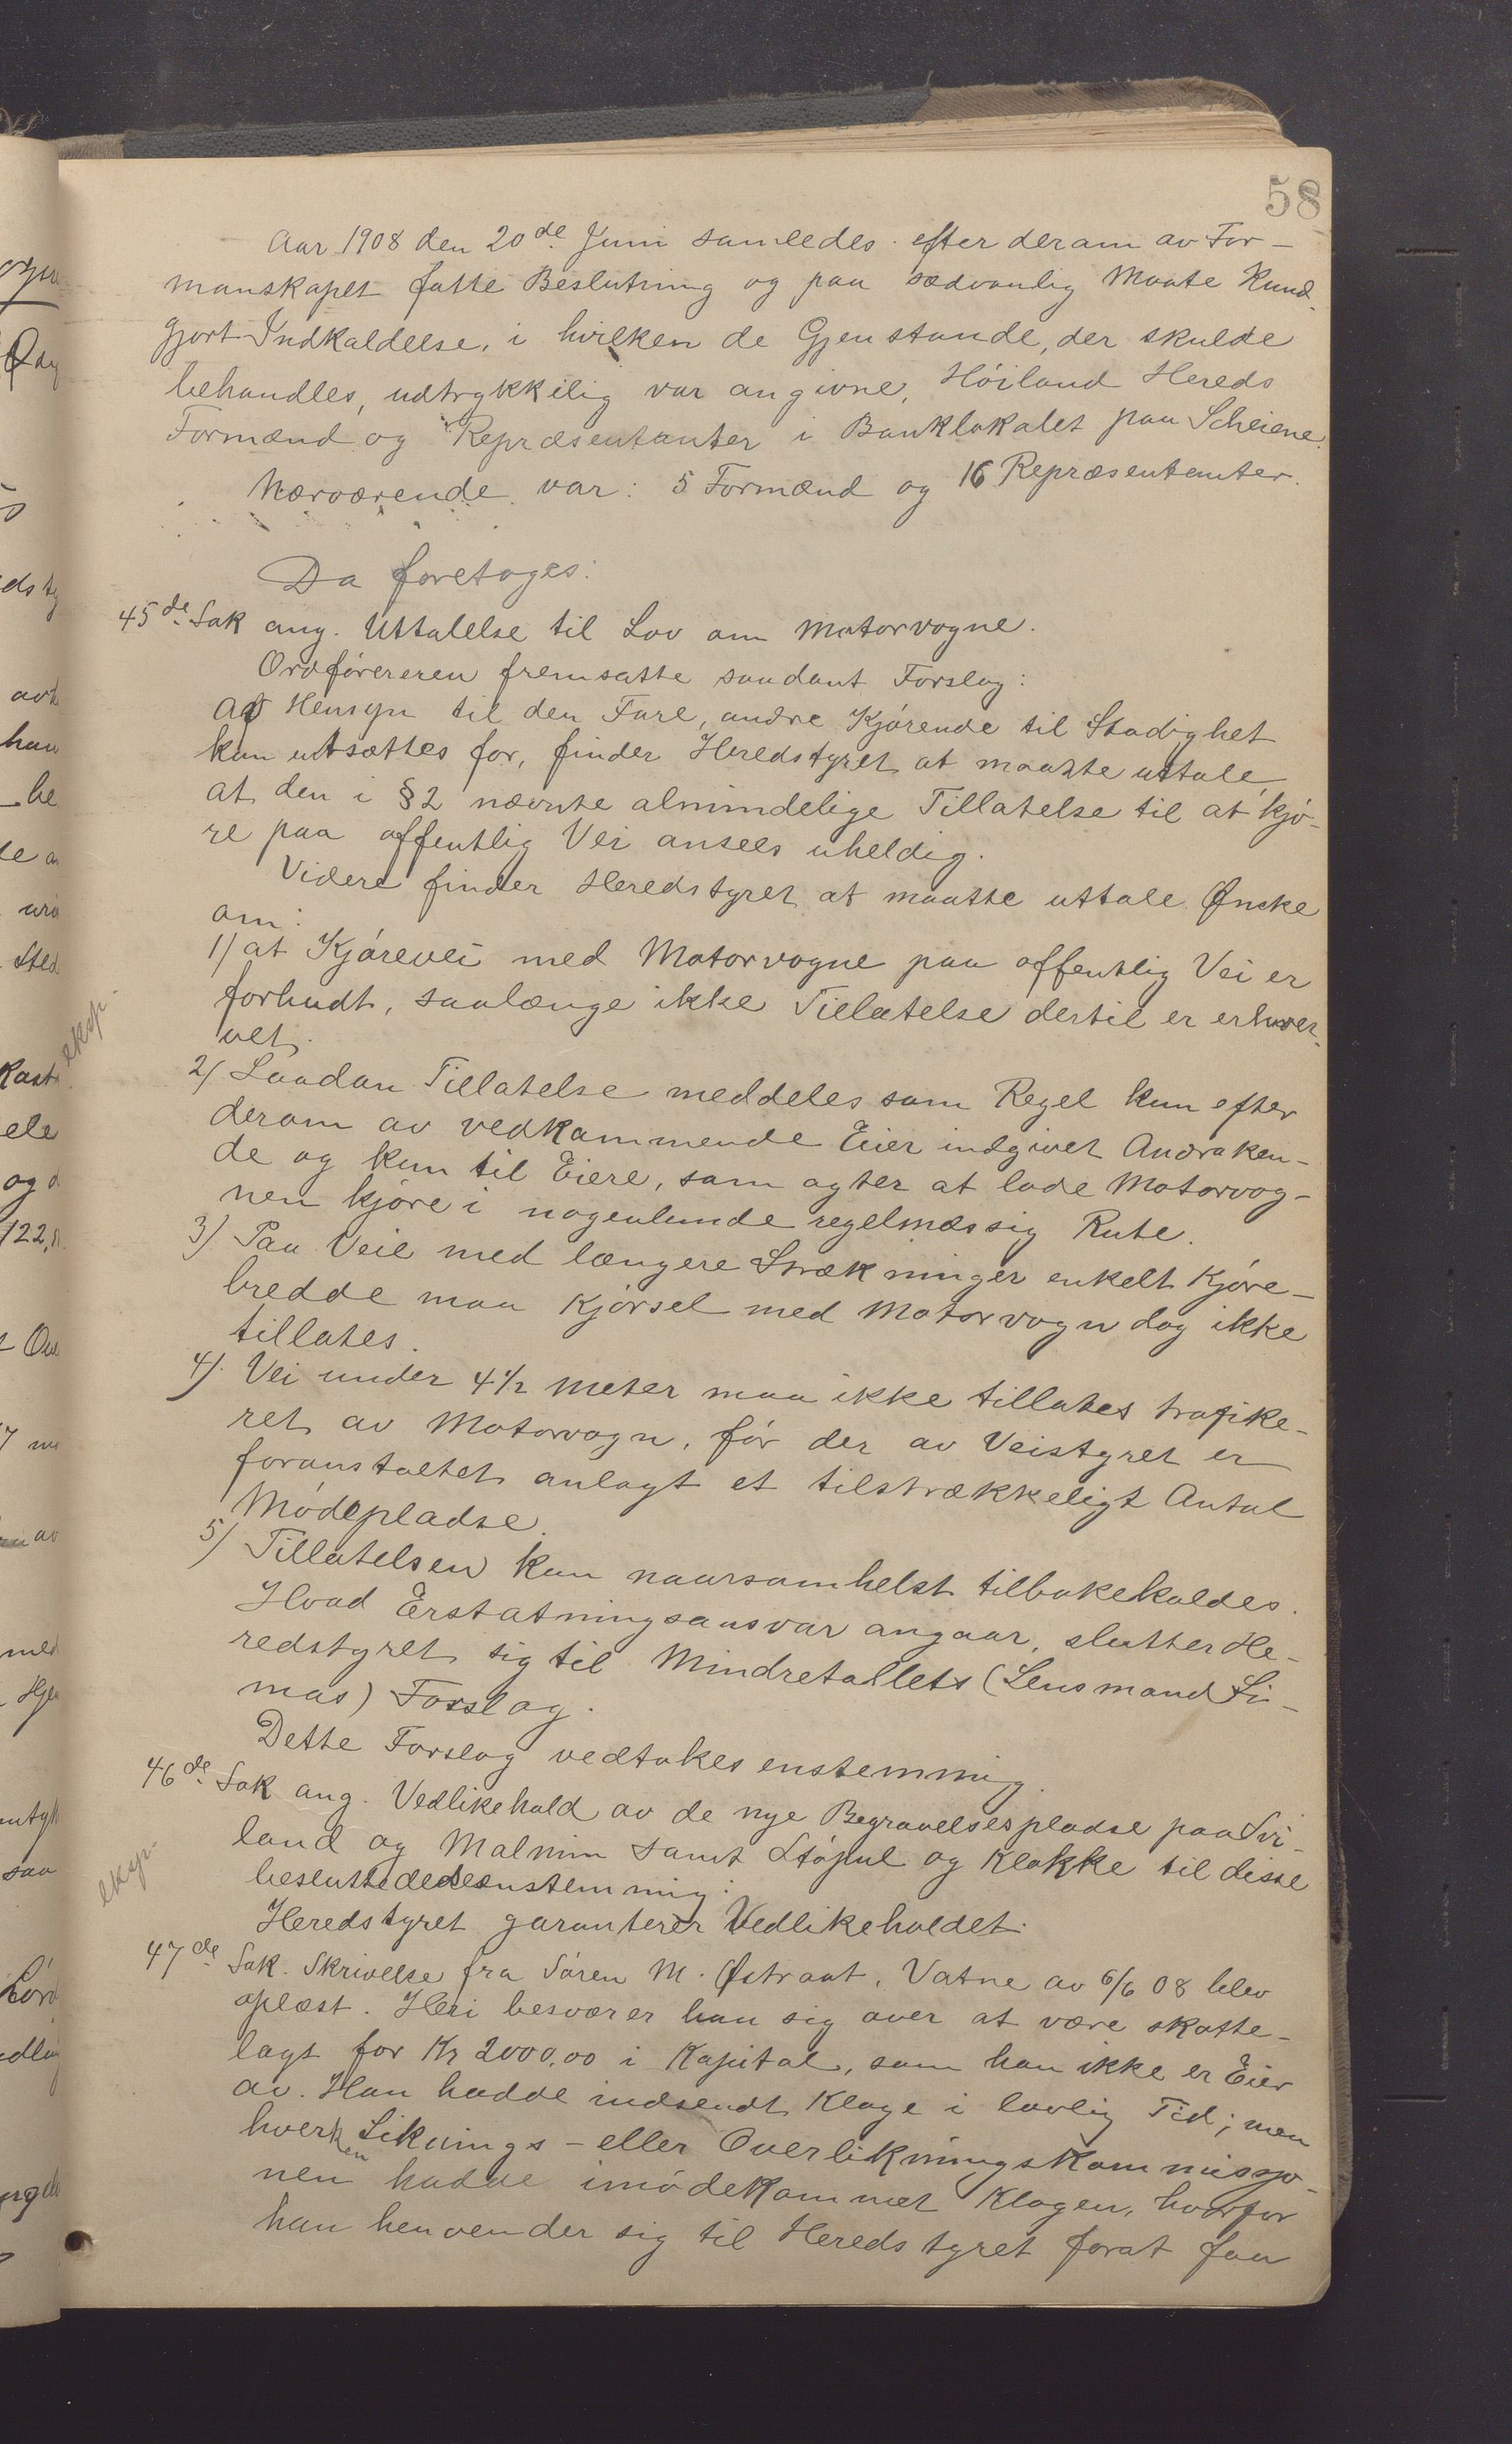 58
Aar 1908 den 20de Juni samledes efter derom av For-
manskapet fatte Beslutning og paa sædvanlig Maate Kund-
gjort Indkaldelse, i hvilken de Gjenstande, der skulde
behandles, udtrykkelig var angivne, Höiland Hereds
Formænd og Repræsentanter i Banklokalet paa Scheiene.
Nærværende var: 5 Formænd og 16 Repræsentanter.
Da foretoges:
45de Sak ang. Uttalelse til Lov om Motorvogne.
Ordförereren fremsatte saadant Forslag:
Av Hensyn til den Fare, andre Kjörende til Stadighet
kan utsættes for, finder Heredstyret at maatte uttale,
at den i §2 nævnte almindelige Tillatelse til at kjö-
re paa offentlig Vei ansees uheldig.
Videre finder Heredstyret at maatte uttale Önske
om:
1) at Kjörevei med Motorvogne paa offentlig Vei er
forbudt, saalænge ikke Tillatelse dertil er erhver-
vet.
eksp.
2) Saadan Tillatelse meddeles som Regel kun efter
derom av vedkommende Eier indgivet Andraken-
de og kun til Eiere, som agter at lade Motorvog-
nen kjöre i nogenlunde regelmæssig Rute.
3) Paa Veie med længere Strækninger enkelt Kjöre-
bredde maa Kjörsel med Motorvogn dog ikke
tillates.
4) Vei under 4½ Meter maa ikke tillates trafike-
ret av Motorvogn, för der av Veistyret er
foranstaltet anlagt et tilstrækkeligt Antal
Mödepladse.
5) Tillatelsen kan naarsomhelst tilbakekaldes.
Hvad Erstatningsansvar angaar, slutter He-
redstyret sig til Mindretallets (Lensmand Li-
mas) Forslag.
Dette Forslag vedtakes enstemmig.
46de Sak ang. Vedlikehold av de nye Begravelsespladse paa Svi-
land og Malmim samt Stöpul og Klokke til disse
besluttedes enstemmig:
eksp.
Heredstyret garanterer Vedlikeholdet.
47de Sak. Skrivelse fra Sören M. Östraat, Vatne av 6/6 08 blev
oplæst. Heri besværer han sig over at være skatte-
lagt for Kr 2000,00 i Kapital, som han ikke er Eier
av. Han hadde indsendt Klage i lovlig Tid; men
hverken Liknings- eller Overlikningskommissjo-
nen hadde imödekommet Klagen, hvorfor
han henvender sig til Heredstyret forat faa